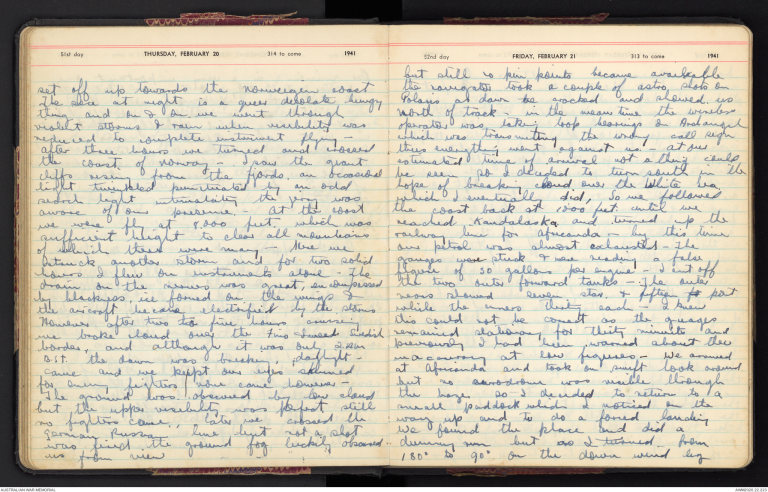 51st day THURSDAY, FEBRUARY 20 314 to come 1941
set off up towards the Norwegian coast
The sea at night is a queer desolate hungry
thing and on & on we went through
violent storms & rain when visibility was
reduced to complete instrument flying
after three hours we turned and crossed
the coast of Norway - I saw the giant
cliffs rising from the fjords, an occasional
light twinkled punctuated by an odd
search light intimating the Jerry was
aware of our presence. - At the coast
we were flying at 8,000 feet which was
sufficient height to clear all mountains
of which there were many - Here we
struck another storm and for two solid
hours I flew on instruments alone - The
drain on the nerves was great, encompassed
by blackness, ice formed on the wings &
the aircraft became electrified by the storms
However after two to five hours cruising
we broke cloud over the Finno Swedish
border, and although it was only 2.am
B.S.T. the dawn was breaking, daylight -
came and we kept our eyes skinned
for enemy fighters, none came however -
The ground was obscured by low cloud
but the upper visibility was perfect still
no fighters came, later we crossed the
German Russian line but not a shot
was fired the ground fog luckily obscured
us from view
52nd day FRIDAY, FEBRUARY 21 313 to come 1941
but still no pin points became available
the navigator took a couple of astro shots on
Polaris at dawn he cracked and showed us
North of track - in the meantime the wireless
operator was taking loop bearings on Archangel
which was transmitting the wrong call sign
thus everything went against us. - at our
estimated time of arrival not a thing could
be seen so I decided to turn south in the
hope of breaking cloud over the White Sea
which I eventually did, So we followed
the coast back at 1000 feet until we
reached Kandalaska and turned up the
railway line for Afrikanda - by this time
our petrol was almost exhausted - The
gauges were stuck & were reading a false
figure of 30 gallons per engine - I cut off
the two outer forward tanks - The outer
rears showed seven star. & fifteen to port
while the inners thirty each, I knew
this could not be correct as the guages
remained stationary for thirty minutes and
previously I had been warned about the
inaccuracy at low figures - We arrived
at Afrikanda and took a swift look around
but no aerodrome was visible through
the haze so I decided to return to a
small paddock which I noticed on the
way up and to do a forced landing
We found the place and did a
dummy run but as I turned from
180° to 90° on the down wind leg
AUSTRALIAN WAR MEMORIAL